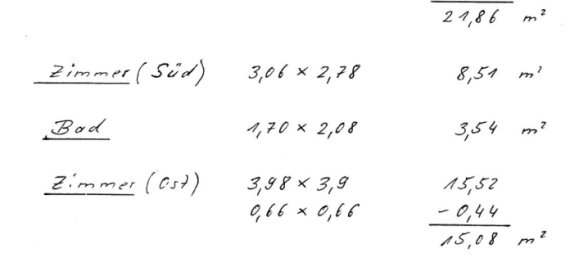 21,86 m²
Zimmer (Süd) 3,06 × 2,78 8,51 m²
Bad 1,70 × 2,08 3,54 m²
Zimmer (Ost) 3,98 × 3,9 15,52
0,66 × 0,66 - 0,44
15,08 m²